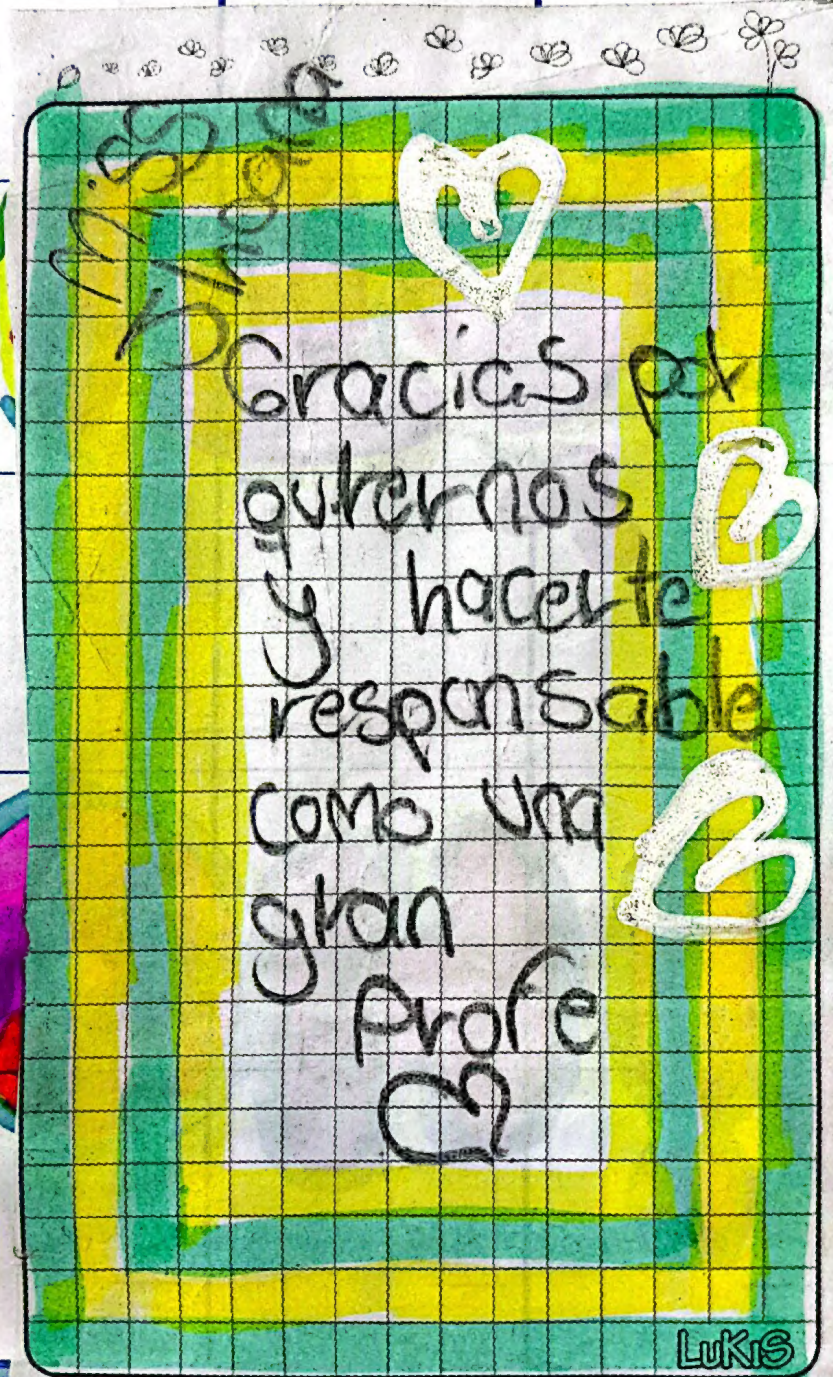 Miss
Gracias por
querernos
y hacerte
responsable
como una
gran
Profe
LUKIS